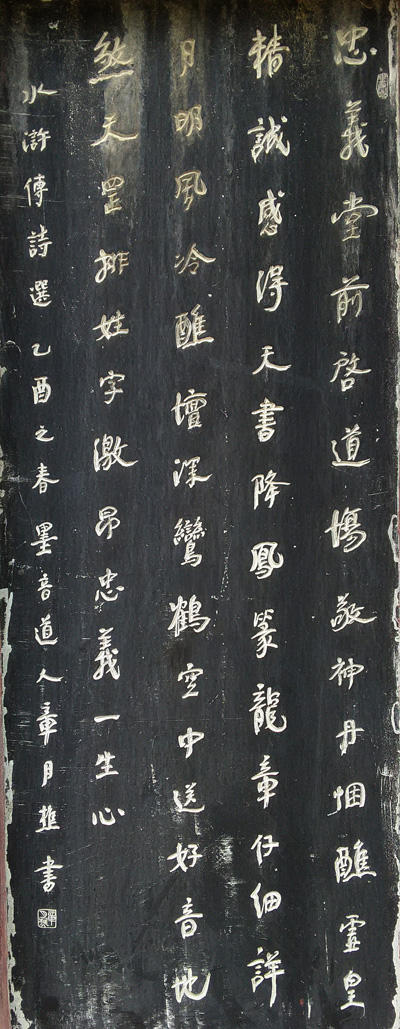 忠義堂前啓道場敬神丹悃醮靈皇
精誠感得天書降鳳篆龍章仔細詳
月明風冷醮壇深鸞鶴空中送好音地
煞天罡排姓字激昂忠義一生心
水滸傳詩選乙酉之春墨音道人章月樵書